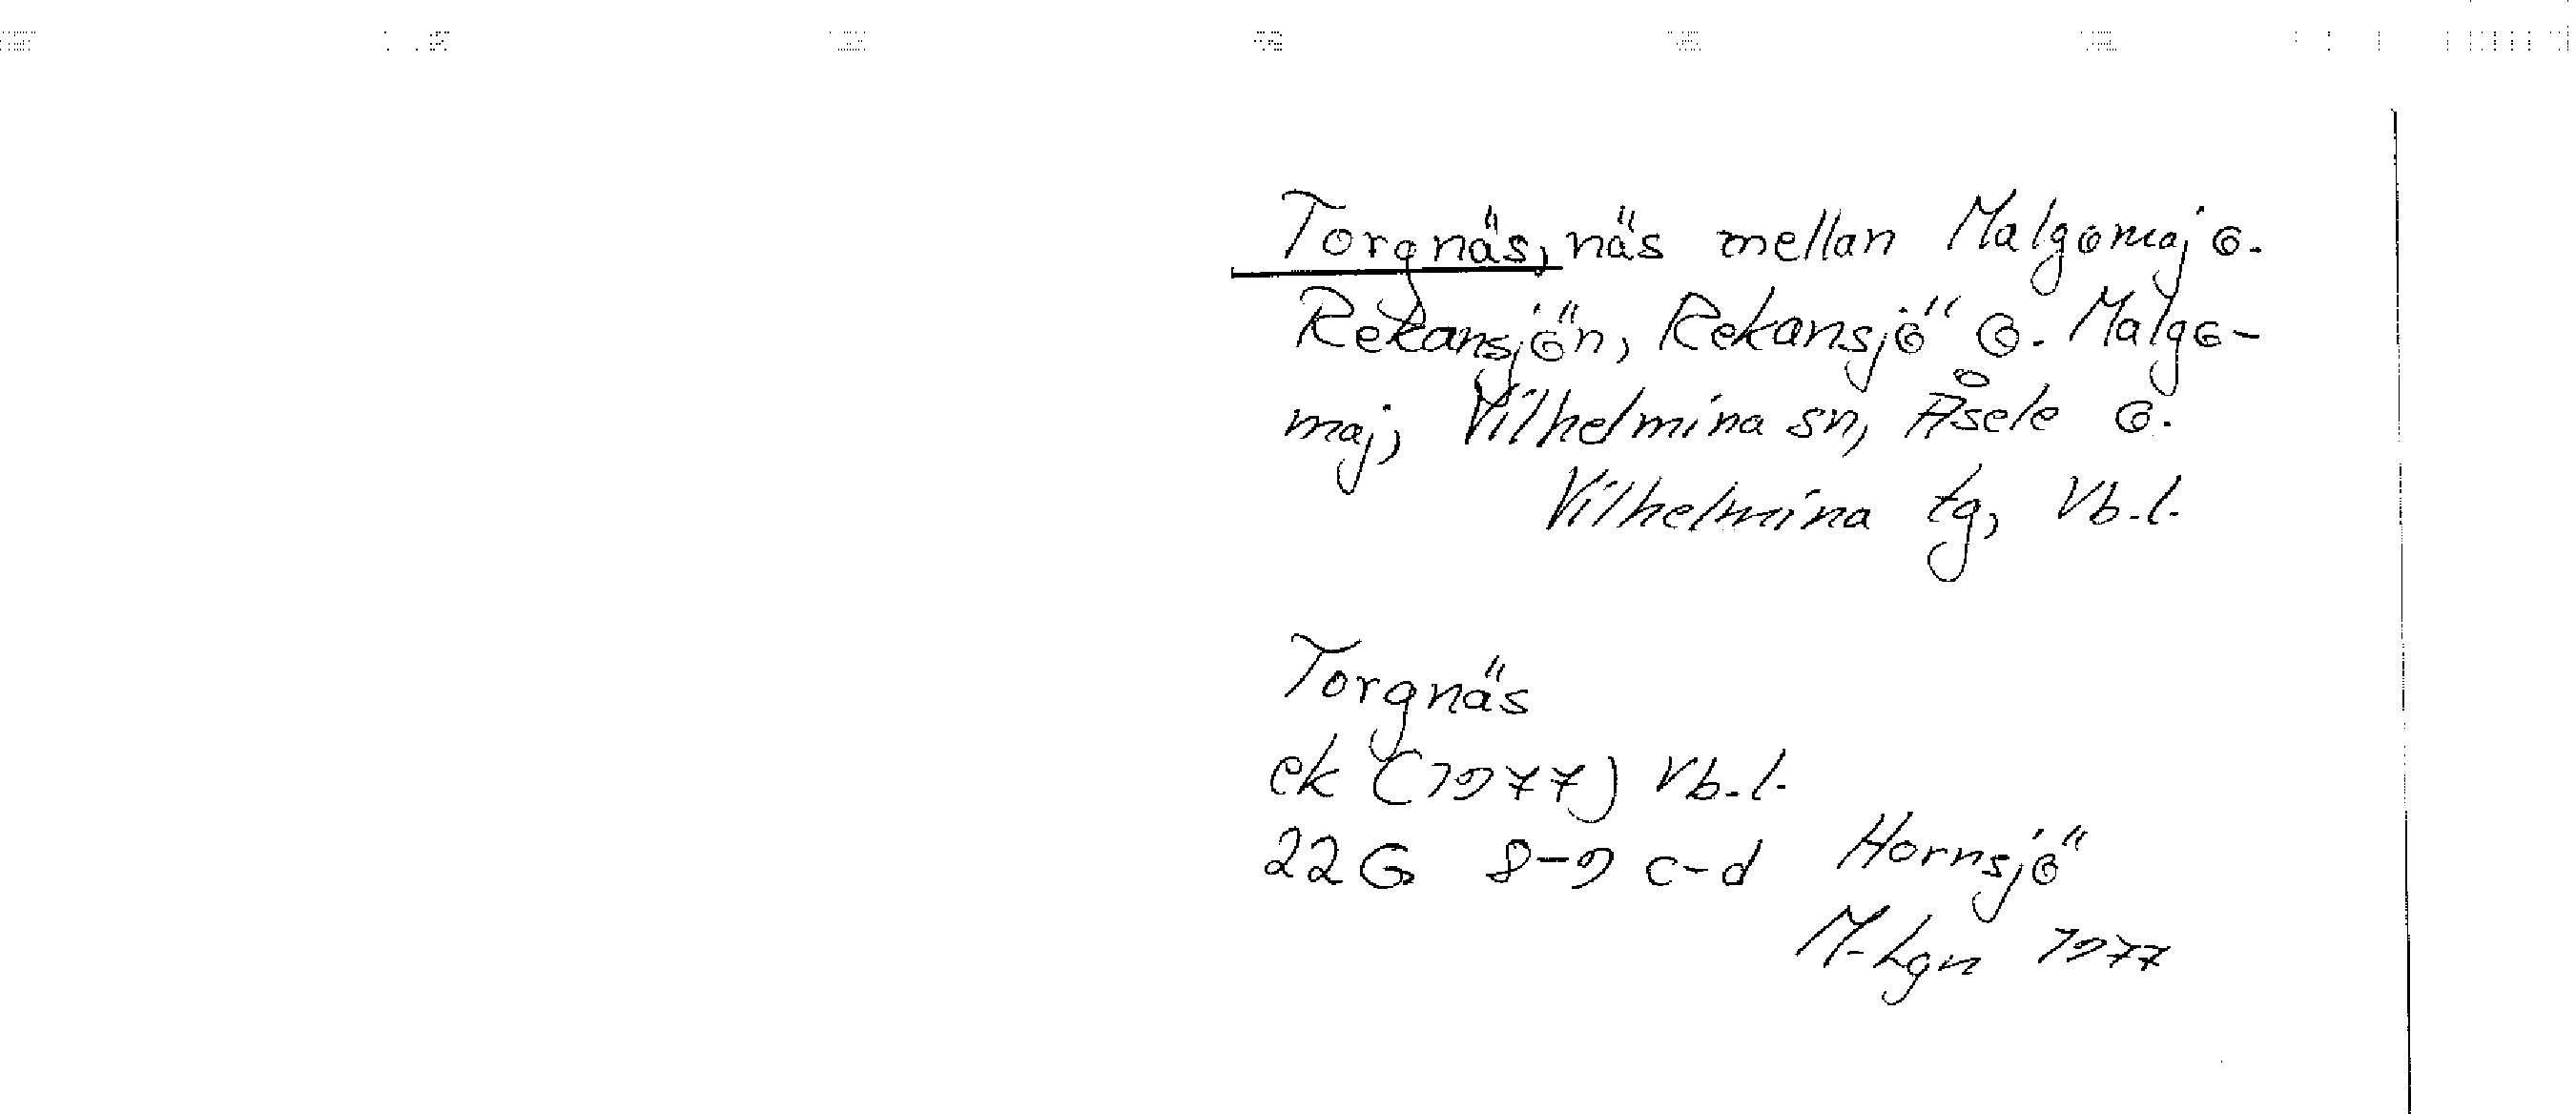 Torgnäs, näs mellan Malgomaj o.
Rekansjön, Rekansjö o. Malgo-
maj, Vilhelmina sn, Åsele o.
Vilhelmina tg, Vb.l.
Torgnäs
ek (1977) Vb.l.
22G 8-9 c-d Hornsjö
M-Lgn 1977